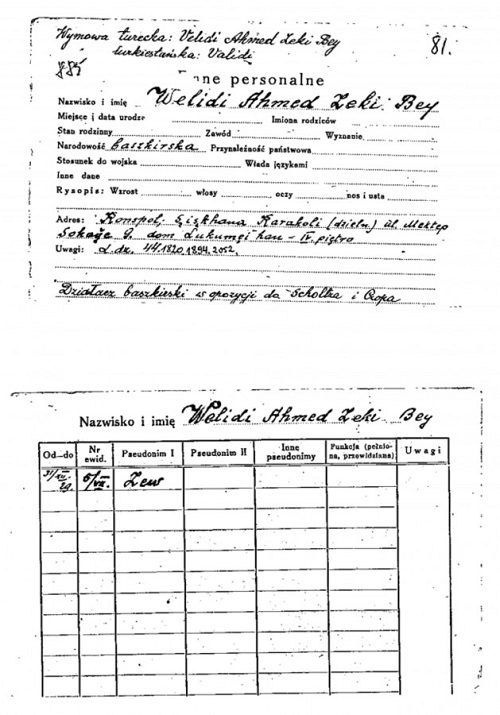 Wymowa turecka: Velidi Ahmed Zeki Bey
turkiestańska: Validi
81.
884
nne personalne
Nazwisko i imię Welidi Ahmed Zeki Bey
Miejsce i data urodze Imiona rodziców
Stan rodzinny Zawód Wyznanie
Narodowość baszkirska Przynależność państwowa
Stosunek do wojska Włada językami
Inne dane
Rysopis: Wzrost włosy oczy nos i usta
Adres: Konspol, Karakoli (dzieln.) ul. Mektep
Sokağe 9. dom Lukumçi han - IV. piętro
Uwagi: L. dz. 44, 1820, 1894, 2052,
Działacz baszkirski w opozycji do i
Nazwisko i imię Welidi Ahmed Zeki Bey
Od—do Nr ewid. Pseudonim I Pseudonim II Inne pseudonimy Funkcja (pełniona, przewidziana) Uwagi
31/VII. 29. 5/VII. Zew